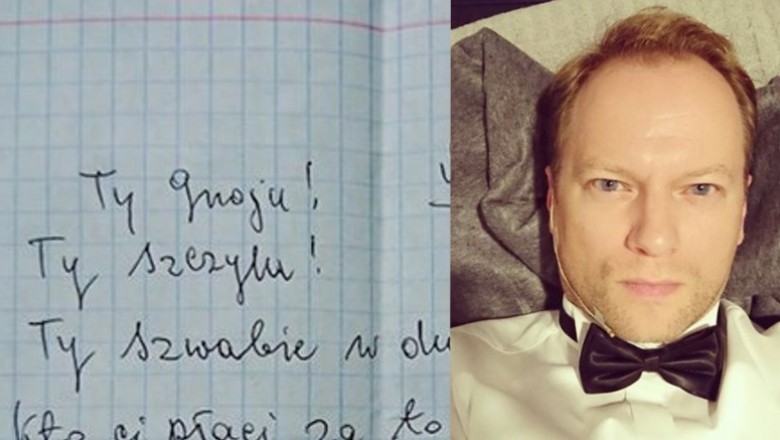 Ty gnoju!
Ty szczylu!
Ty szwabie w du
Kto ci płaci za to